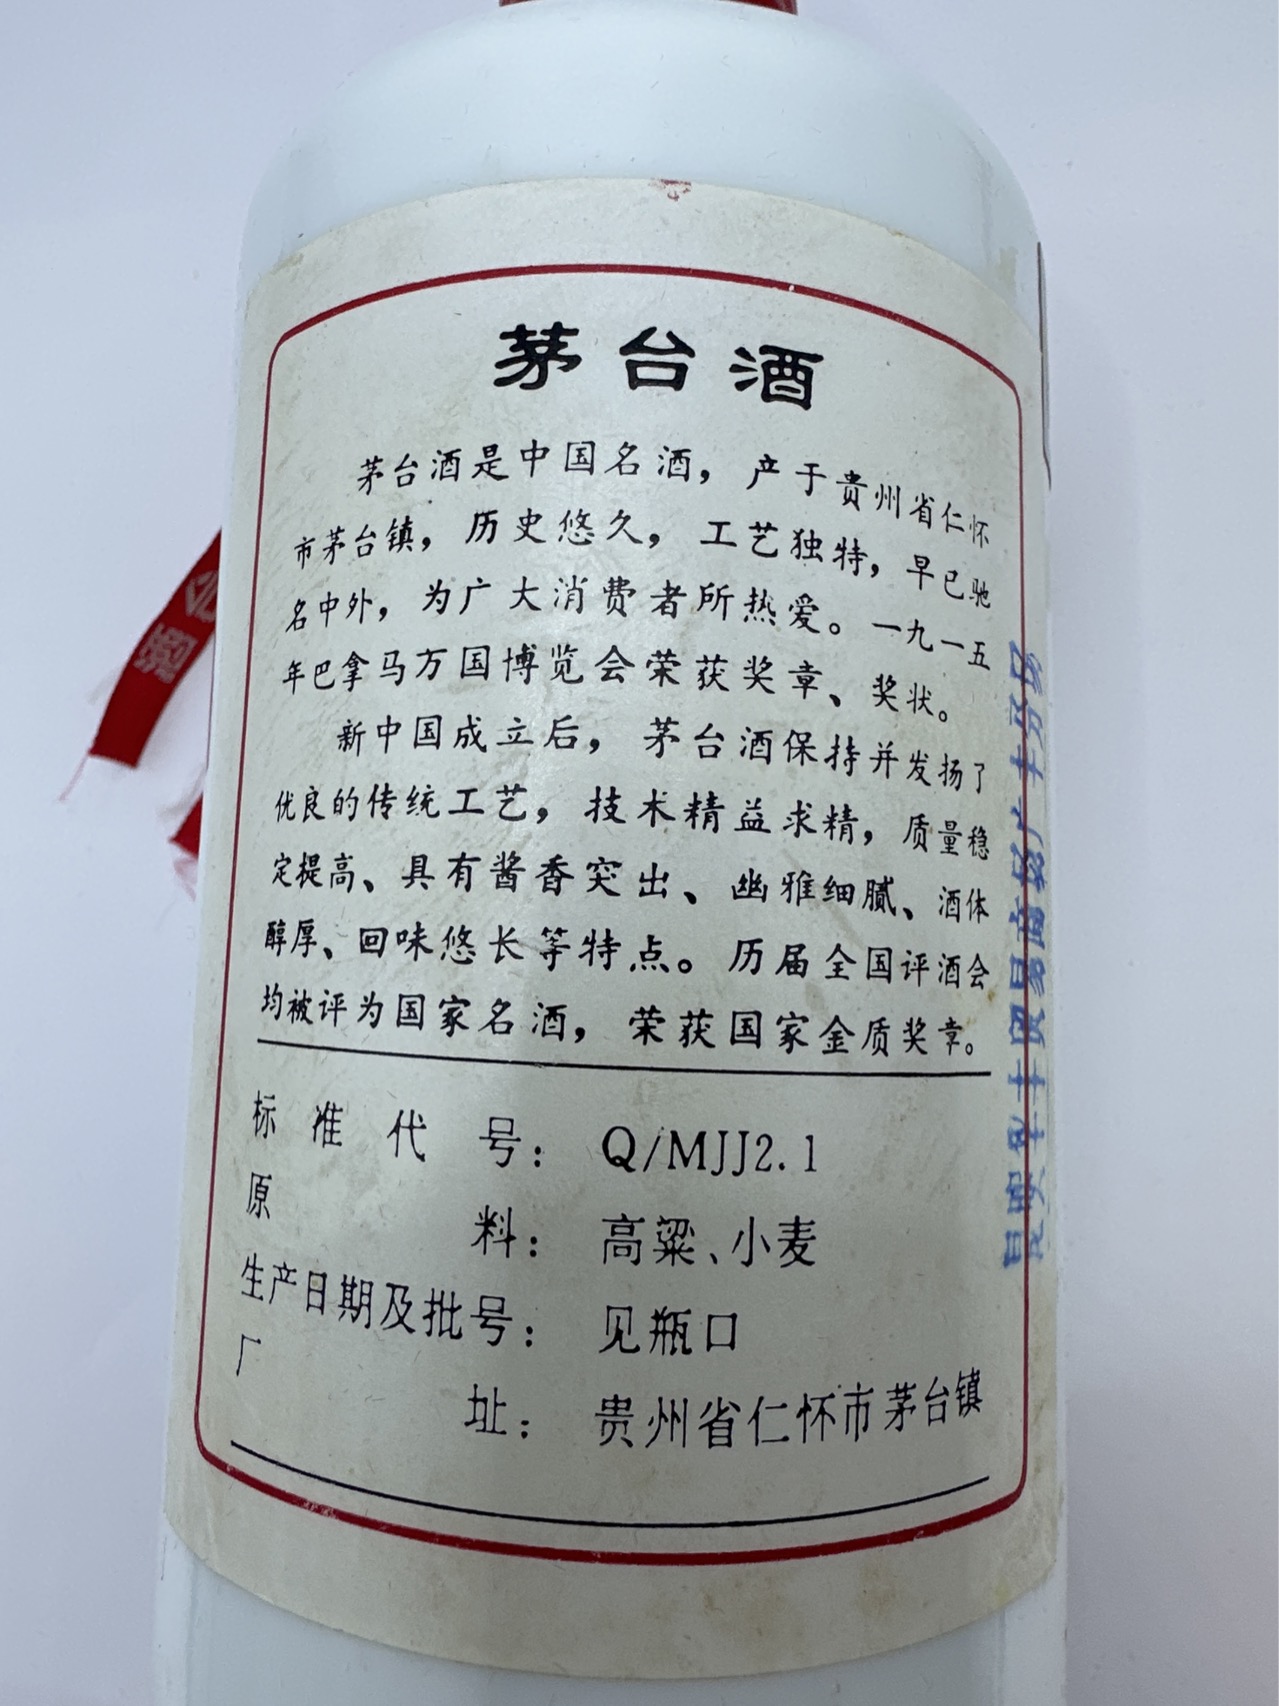 茅台酒
茅台酒是中国名酒，产于贵州省仁怀
市茅台镇，历史悠久，工艺独特，早已驰
名中外，为广大消费者所热爱。一九一五
年巴拿马万国博览会荣获奖章、奖状。
新中国成立后，茅台酒保持并发扬了
优良的传统工艺，技术精益求精，质量稳
定提高、具有酱香突出、幽雅细腻、酒体
醇厚、回味悠长等特点。历届全国评酒会
均被评为国家名酒，荣获国家金质奖章。
标准代号：Q/MJJ2.1
原料：高粱、小麦
生产日期及批号：见瓶口
厂址：贵州省仁怀市茅台镇